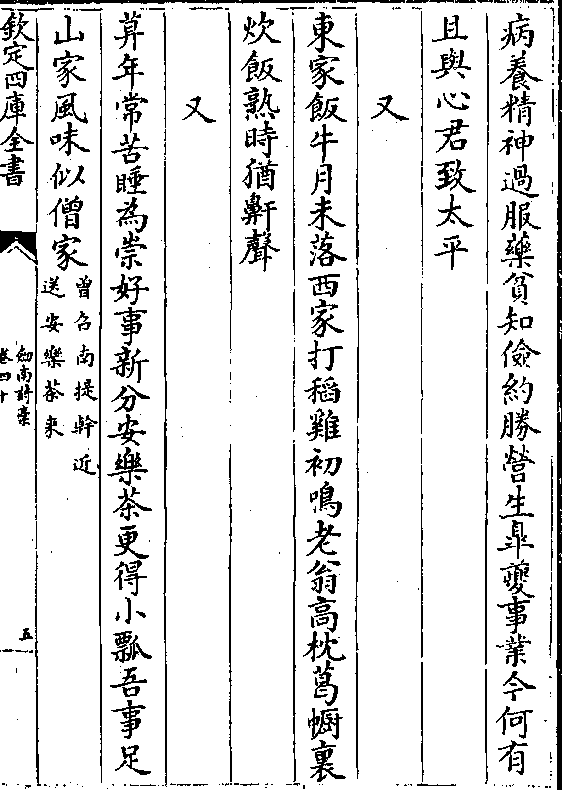 病養精神過服藥貧知儉約勝營生臯夔事業今何有
且與心君致太平
又
東家飯牛月未落西家打稻雞初鳴老翁高枕葛幮裏
炊飯熟時猶鼾聲
又
筭年常苦睡為祟好事新分安樂茶更得小瓢吾事足
山家風味似僧家
曾召南提幹近
送安樂茶來
欽定四庫全書
劍南詩藁
卷四十
五